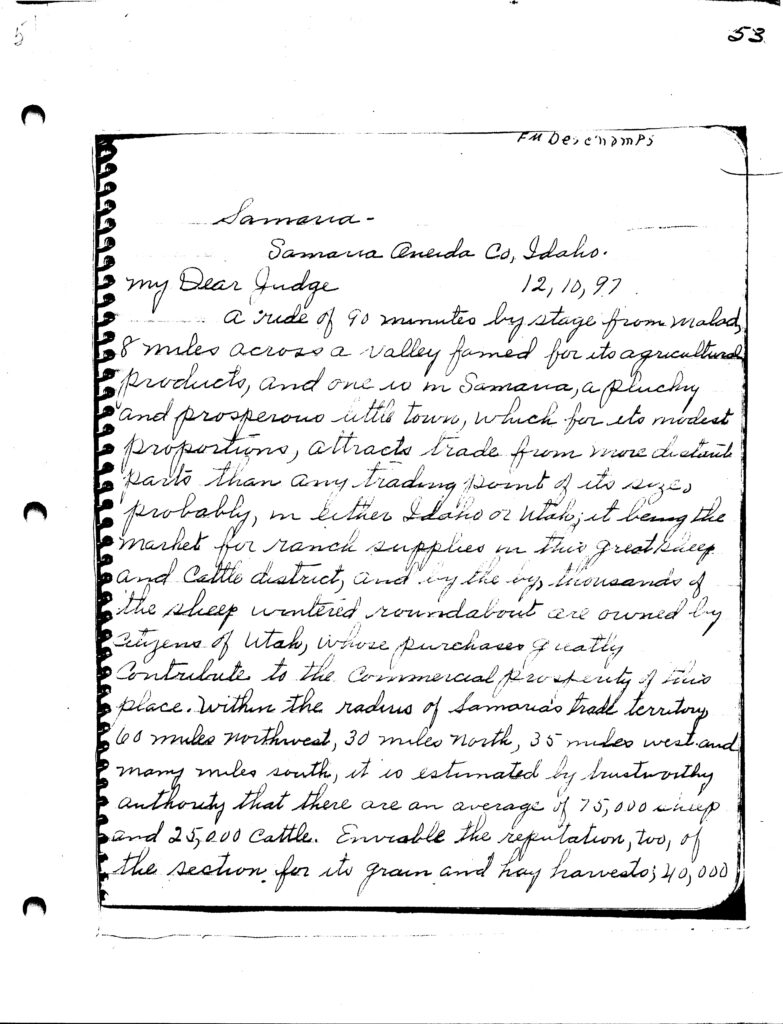 5
53
FM Deschamps
Samaria -
Samaria Oneida Co, Idaho.
My Dear Judge 12, 10, 97
A ride of 90 minutes by stage from Malad,
8 miles across a valley famed for its agricultural
products, and one is in Samaria, a plucky
and prosperous little town, which for its modest
proportions, attracts trade from more distant
parts than any trading point of its size,
probably, in either Idaho or Utah; it being the
market for ranch supplies in this great sheep
and cattle district, and by the by, thousands of
the sheep wintered roundabout are owned by
citizens of Utah, whose purchases greatly
contribute to the commercial prosperity of this
place. Within the radius of Samaria's trade territory
60 miles northwest, 30 miles north, 35 miles west and
many miles south, it is estimated by trustworthy
authority that there are an average of 75,000 sheep
and 25,000 cattle. Enviable the reputation, too, of
the section for its grain and hay harvests; 40,000